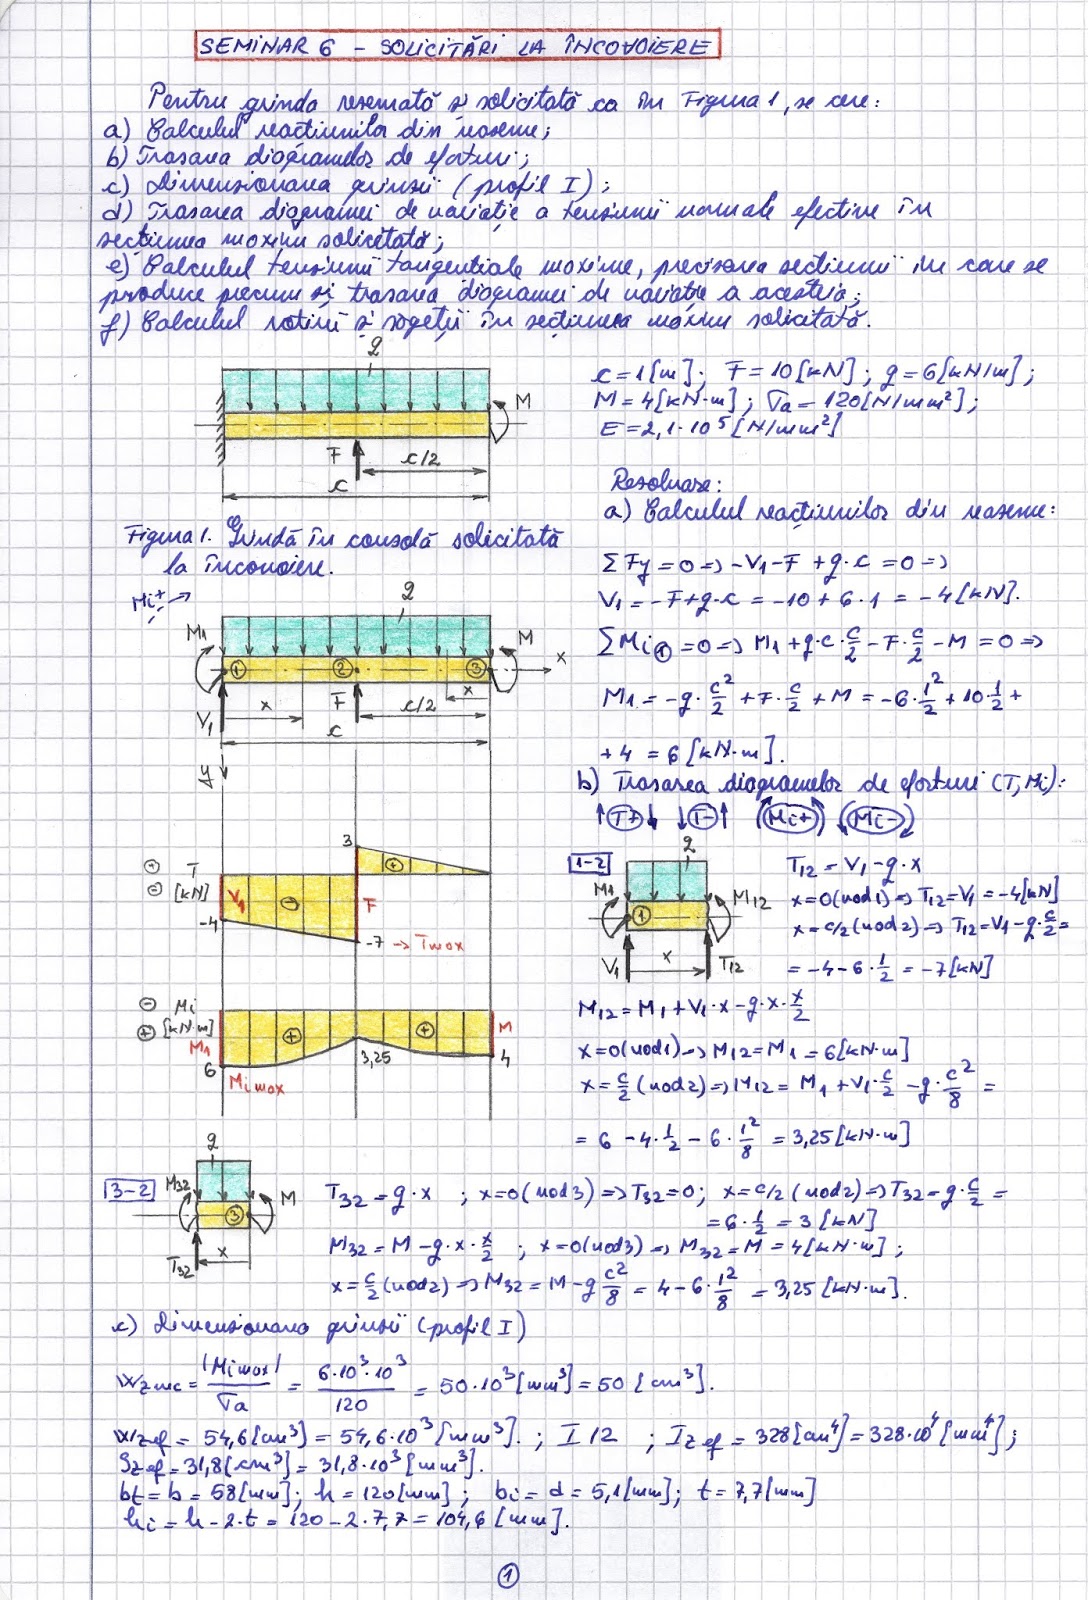 SEMINAR 6 – SOLICITĂRI LA ÎNCOVOIERE
Pentru grinda rezemată și solicitată ca în Figura 1, se cere:
a) Calculul reacțiunilor din reazeme;
b) Trasarea diagramelor de eforturi;
c) Dimensionarea grinzii (profil I);
d) Trasarea diagramei de variație a tensiunii normale efective în
secțiunea maxim solicitată;
e) Calculul tensiunii tangențiale maxime, precizarea secțiunii în care se
produce precum și trasarea diagramei de variație a acesteia;
f) Calculul rotirii și săgeții în secțiunea maxim solicitată.
q
M
F
c/2
c
c = 1 [m]; F = 10 [kN]; q = 6 [kN/m];
M = 4 [kN·m]; σa = 120 [N/mm²];
E = 2,1·10⁵ [N/mm²]
Figura 1. Grindă în consolă solicitată
la încovoiere.
Rezolvare:
a) Calculul reacțiunilor din reazeme:
ΣFy = 0 => -V1 - F + q·c = 0 =>
V1 = -F + q·c = -10 + 6·1 = -4 [kN].
ΣMi① = 0 => M1 + q·c·c/2 - F·c/2 - M = 0 =>
M1 = -q·c²/2 + F·c/2 + M = -6·1²/2 + 10·1/2 +
+ 4 = 6 [kN·m].
Mi+
q
M1
M
① ② ③ x
x F c/2 x
V1
c
y
b) Trasarea diagramelor de eforturi (T, Mi):
T+ T- Mi+ Mi-
⊕ T
⊖ [kN]
3
⊕
V1
⊖
F
-4
-7 -> Tmax
⊖ Mi
⊕ [kN·m]
M1
⊕ ⊕
M
6
3,25
4
Mi max
1-2
q
M1
①
M12
V1
x
T12
T12 = V1 - q·x
x = 0 (nod 1) => T12 = V1 = -4 [kN]
x = c/2 (nod 2) => T12 = V1 - q·c/2 =
= -4 - 6·1/2 = -7 [kN]
M12 = M1 + V1·x - q·x·x/2
x = 0 (nod 1) => M12 = M1 = 6 [kN·m]
x = c/2 (nod 2) => M12 = M1 + V1·c/2 - q·c²/8 =
= 6 - 4·1/2 - 6·1²/8 = 3,25 [kN·m]
3-2
q
M32
③
M
T32
x
T32 = q·x ; x = 0 (nod 3) => T32 = 0; x = c/2 (nod 2) => T32 = q·c/2 =
= 6·1/2 = 3 [kN]
M32 = M - q·x·x/2 ; x = 0 (nod 3) => M32 = M = 4 [kN·m];
x = c/2 (nod 2) => M32 = M - q c²/8 = 4 - 6·1²/8 = 3,25 [kN·m].
c) Dimensionarea grinzii (profil I)
Wz nec = |Mi max|/σa = 6·10³·10³/120 = 50·10³ [mm³] = 50 [cm³].
Wz ef = 54,6 [cm³] = 54,6·10³ [mm³]. ; I 12 ; Iz ef = 328 [cm⁴] = 328·10⁴ [mm⁴];
Sz ef = 31,8 [cm³] = 31,8·10³ [mm³].
bt = b = 58 [mm]; h = 120 [mm]; bi = d = 5,1 [mm]; t = 7,7 [mm]
hi = h - 2·t = 120 - 2·7,7 = 104,6 [mm].
①